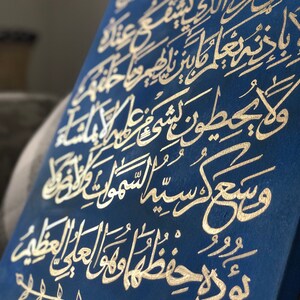 ذا الذي يشفع عنده
إلا بإذنه يعلم ما بين أيديهم وما خلفهم
ولا يحيطون بشيء من علمه إلا بما شاء
وسع كرسيه السموات والأرض ولا
يؤده حفظهما وهو العلي العظيم